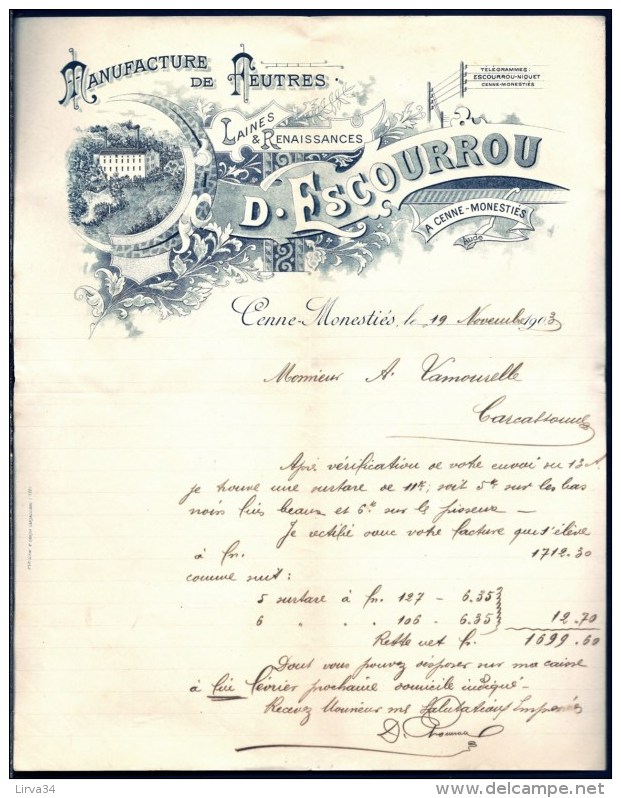 MANUFACTURE
DE FEUTRES.
TÉLÉGRAMMES:
ESCOURROU-NIQUET
CENNE-MONESTIÉS
LAINES
& RENAISSANCES
D. ESCOURROU
A CENNE-MONESTIÉS
Aude
Cenne-Monestiés, le 19 Novembre 1903
Monsieur A. Vamourelle
Carcassonne
Après vérification de votre envoi du 13 Ct
je trouve une surtare de 11k; soit 5k sur les bas
noirs fins beaux et 6k sur le pisseux —
Je rectifie donc votre facture qui s'élève
à fr. 1712.30
comme suit:
5 surtare à fr. 127 - 6.35
6 " " 106 - 6.35 12.70
Reste net fr. 1699.60
Dont vous pouvez disposer sur ma caisse
à fin février prochain domicile indiqué —
Recevez Monsieur mes Salutations
D. Escourrou
Lirva34
delcampe.net